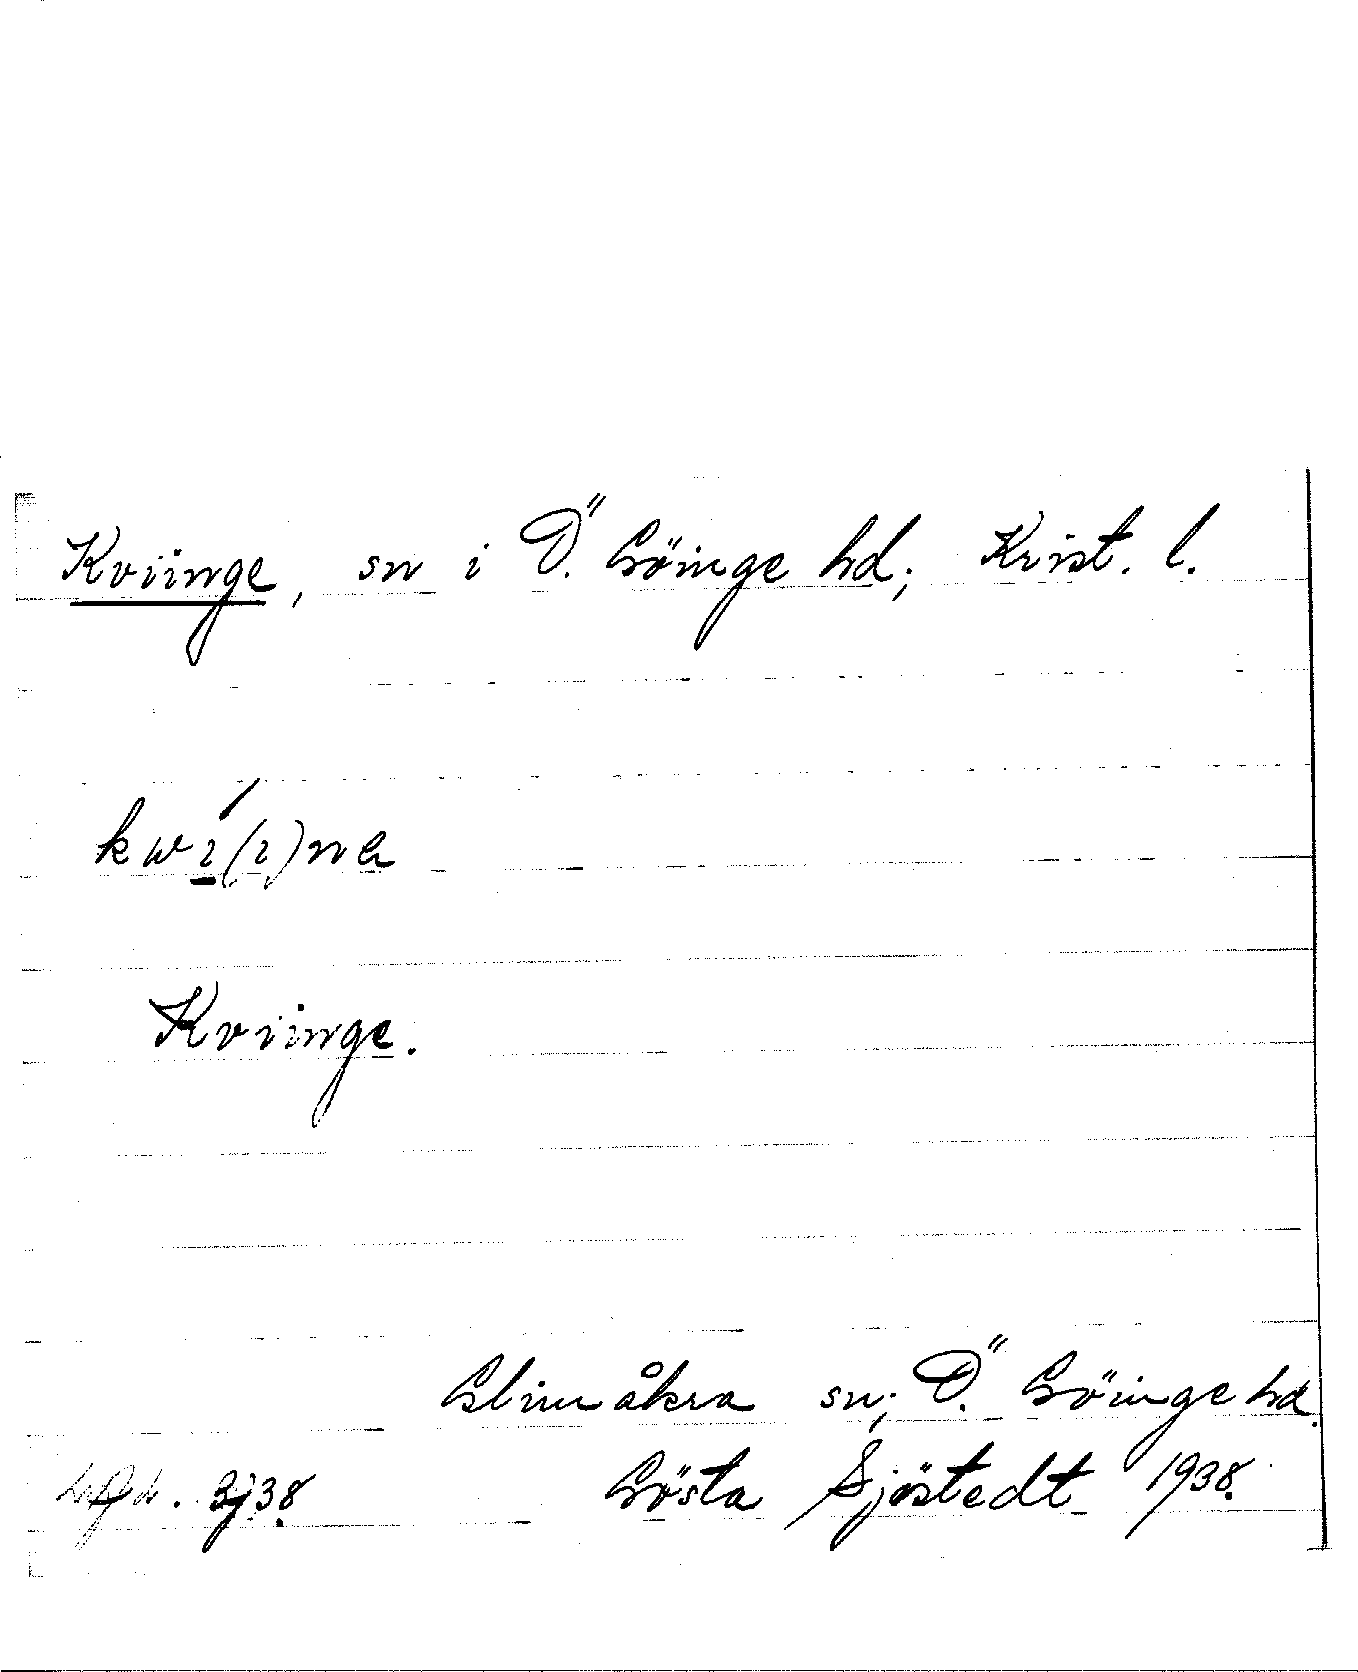 Kviinge, sn i Ö. Göinge hd; Krist. l.
kwí(i)ŋə
Kviinge.
Glimåkra sn; Ö. Göinge hd.
3/38 Gösta Sjöstedt 1938.